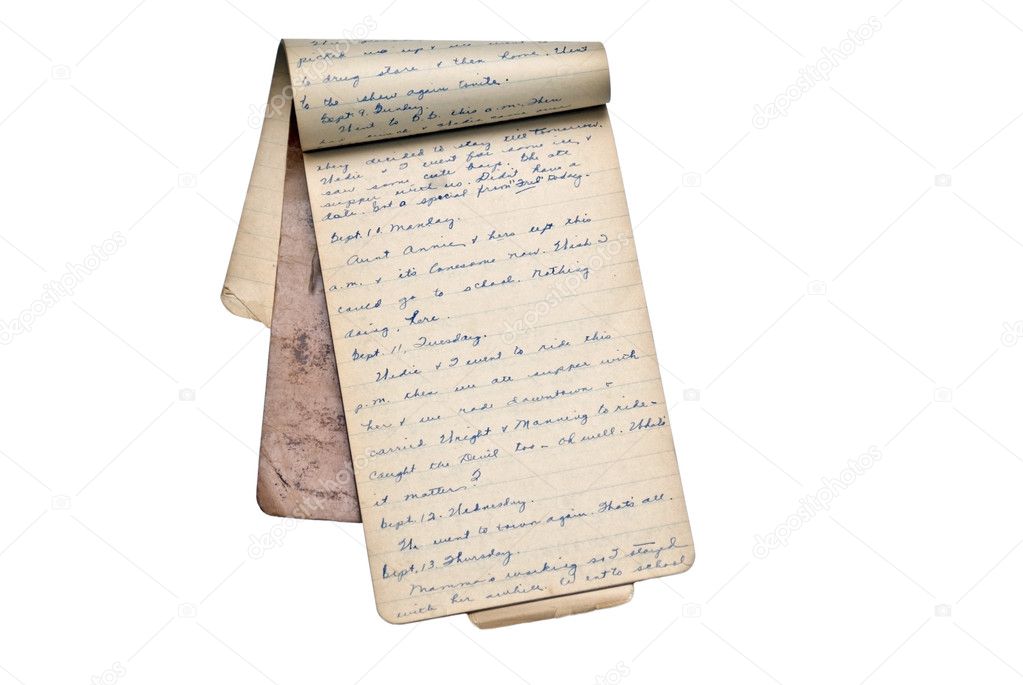 picked us up & we went to
to drug store & then home. Went
to the show again tonite.
Sept. 9. Sunday.
Went to B.B. this a.m. Then
they decided to stay till tomorrow.
& I went for some ice &
saw some cute boys. She ate
supper with us. Didn't have a
date. Got a special from "Fred" today.
Sept. 10. Monday.
Aunt Annie & hers left this
a.m. & it's lonesome now. Wish I
could go to school. Nothing
doing, here.
Sept. 11. Tuesday.
& I went to ride this
p.m. then we ate supper with
her & we rode downtown &
carried Wright & Manning to ride -
caught the Devil too - oh well. What's
it matter?
Sept. 12. Wednesday.
We went to town again. That's all.
Sept. 13. Thursday.
Mamma's working so I stayed
with her awhile. Went to school
depositphotos